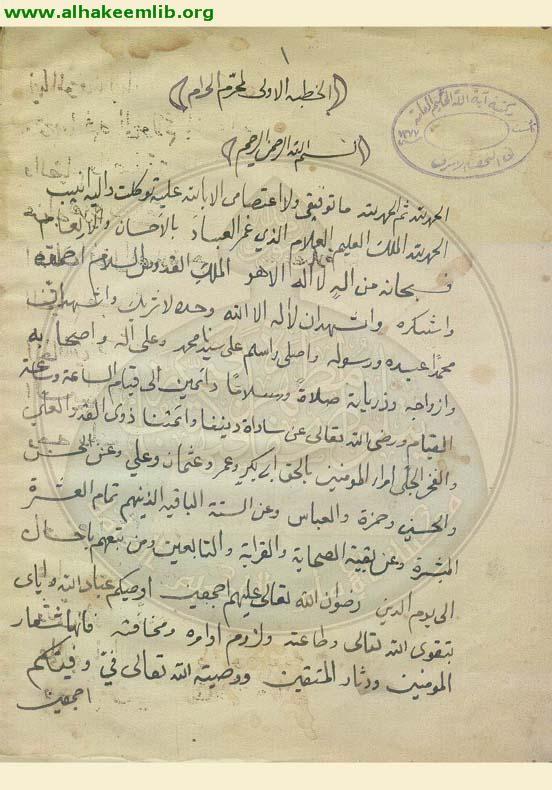 www.alhakeemlib.org
١
الخطبه الاولى لمحرّم الحرام
بسم الله الرحمن الرحيم
مكتبة آية الله الحكيم العامة
في النجف الاشرف
الحمدلله ثم الحمدلله ما توفيقي ولا اعتصامي الا بالله عليه توكلت واليه انيب
الحمدلله الملك العليم العلام الذي غمر العباد بالاحسان والانعام
فسبحانه من اله لا اله الا هو الملك القدوس السلام احمده
واشكره واشهد ان لا اله الا الله وحده لا شريك واشهد ان
محمدا عبده ورسوله واصلي واسلم على سيدنا محمد وعلى آله واصحابه
وازواجه وذرياته صلاة وسلاما دائمين الى قيام الساعة وساعة
القيام ورضي الله تعالى عن ساداة ديننا وائمتنا ذوي القدر العلي
والفخر الجلي امراء المومنين بالحق ابي بكر وعمر وعثمان وعلي وعن الحسن
والحسين وحمزة والعباس وعن الستة الباقيه الذينهم تمام العشرة
المبشرة وعن بقية الصحابة والقرابة والتابعين ومن تبعهم باحسان
الى يوم الدين رضوان الله تعالى عليهم اجمعين اوصيكم عباد الله واياي
بتقوى الله تعالى وطاعته ولازم اوامره ومخافته فانها شعار
المومنين ودثار المتقين ووصية الله تعالى فيّ وفيكم
اجمعين